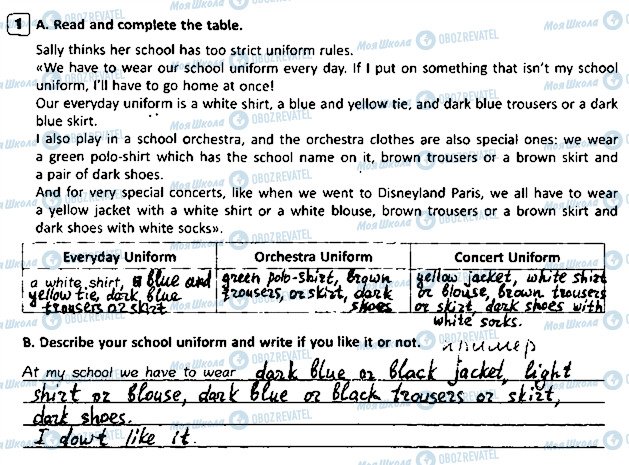 1 A. Read and complete the table.
Sally thinks her school has too strict uniform rules.
«We have to wear our school uniform every day. If I put on something that isn't my school
uniform, I'll have to go home at once!
Our everyday uniform is a white shirt, a blue and yellow tie, and dark blue trousers or a dark
blue skirt.
I also play in a school orchestra, and the orchestra clothes are also special ones: we wear
a green polo-shirt which has the school name on it, brown trousers or a brown skirt and
a pair of dark shoes.
And for very special concerts, like when we went to Disneyland Paris, we all have to wear
a yellow jacket with a white shirt or a white blouse, brown trousers or a brown skirt and
dark shoes with white socks».
Everyday Uniform
a white shirt, a blue and
yellow tie, dark blue
trousers or skirt
Orchestra Uniform
green polo-shirt, brown
trousers, or skirt, dark
shoes
Concert Uniform
yellow jacket, white shirt
or blouse, brown trousers
or skirt, dark shoes with
white socks.
B. Describe your school uniform and write if you like it or not.
пример
At my school we have to wear dark blue or black jacket, light
shirt or blouse, dark blue or black trousers or skirt,
dark shoes.
I don't like it.
Моя Школа OBOZREVATEL